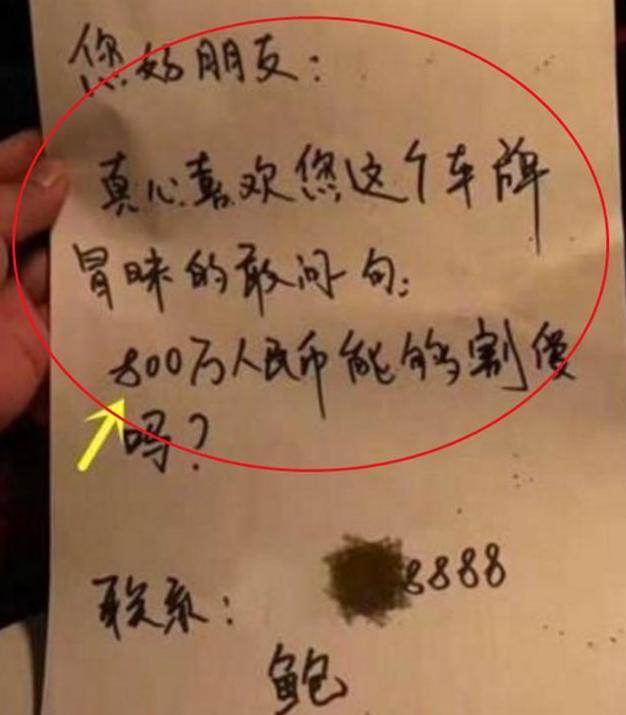 您好朋友：
真心喜欢您这个车牌
冒昧的敢问句：
800万人民币能够割爱
吗？
联系： 8888
鲍